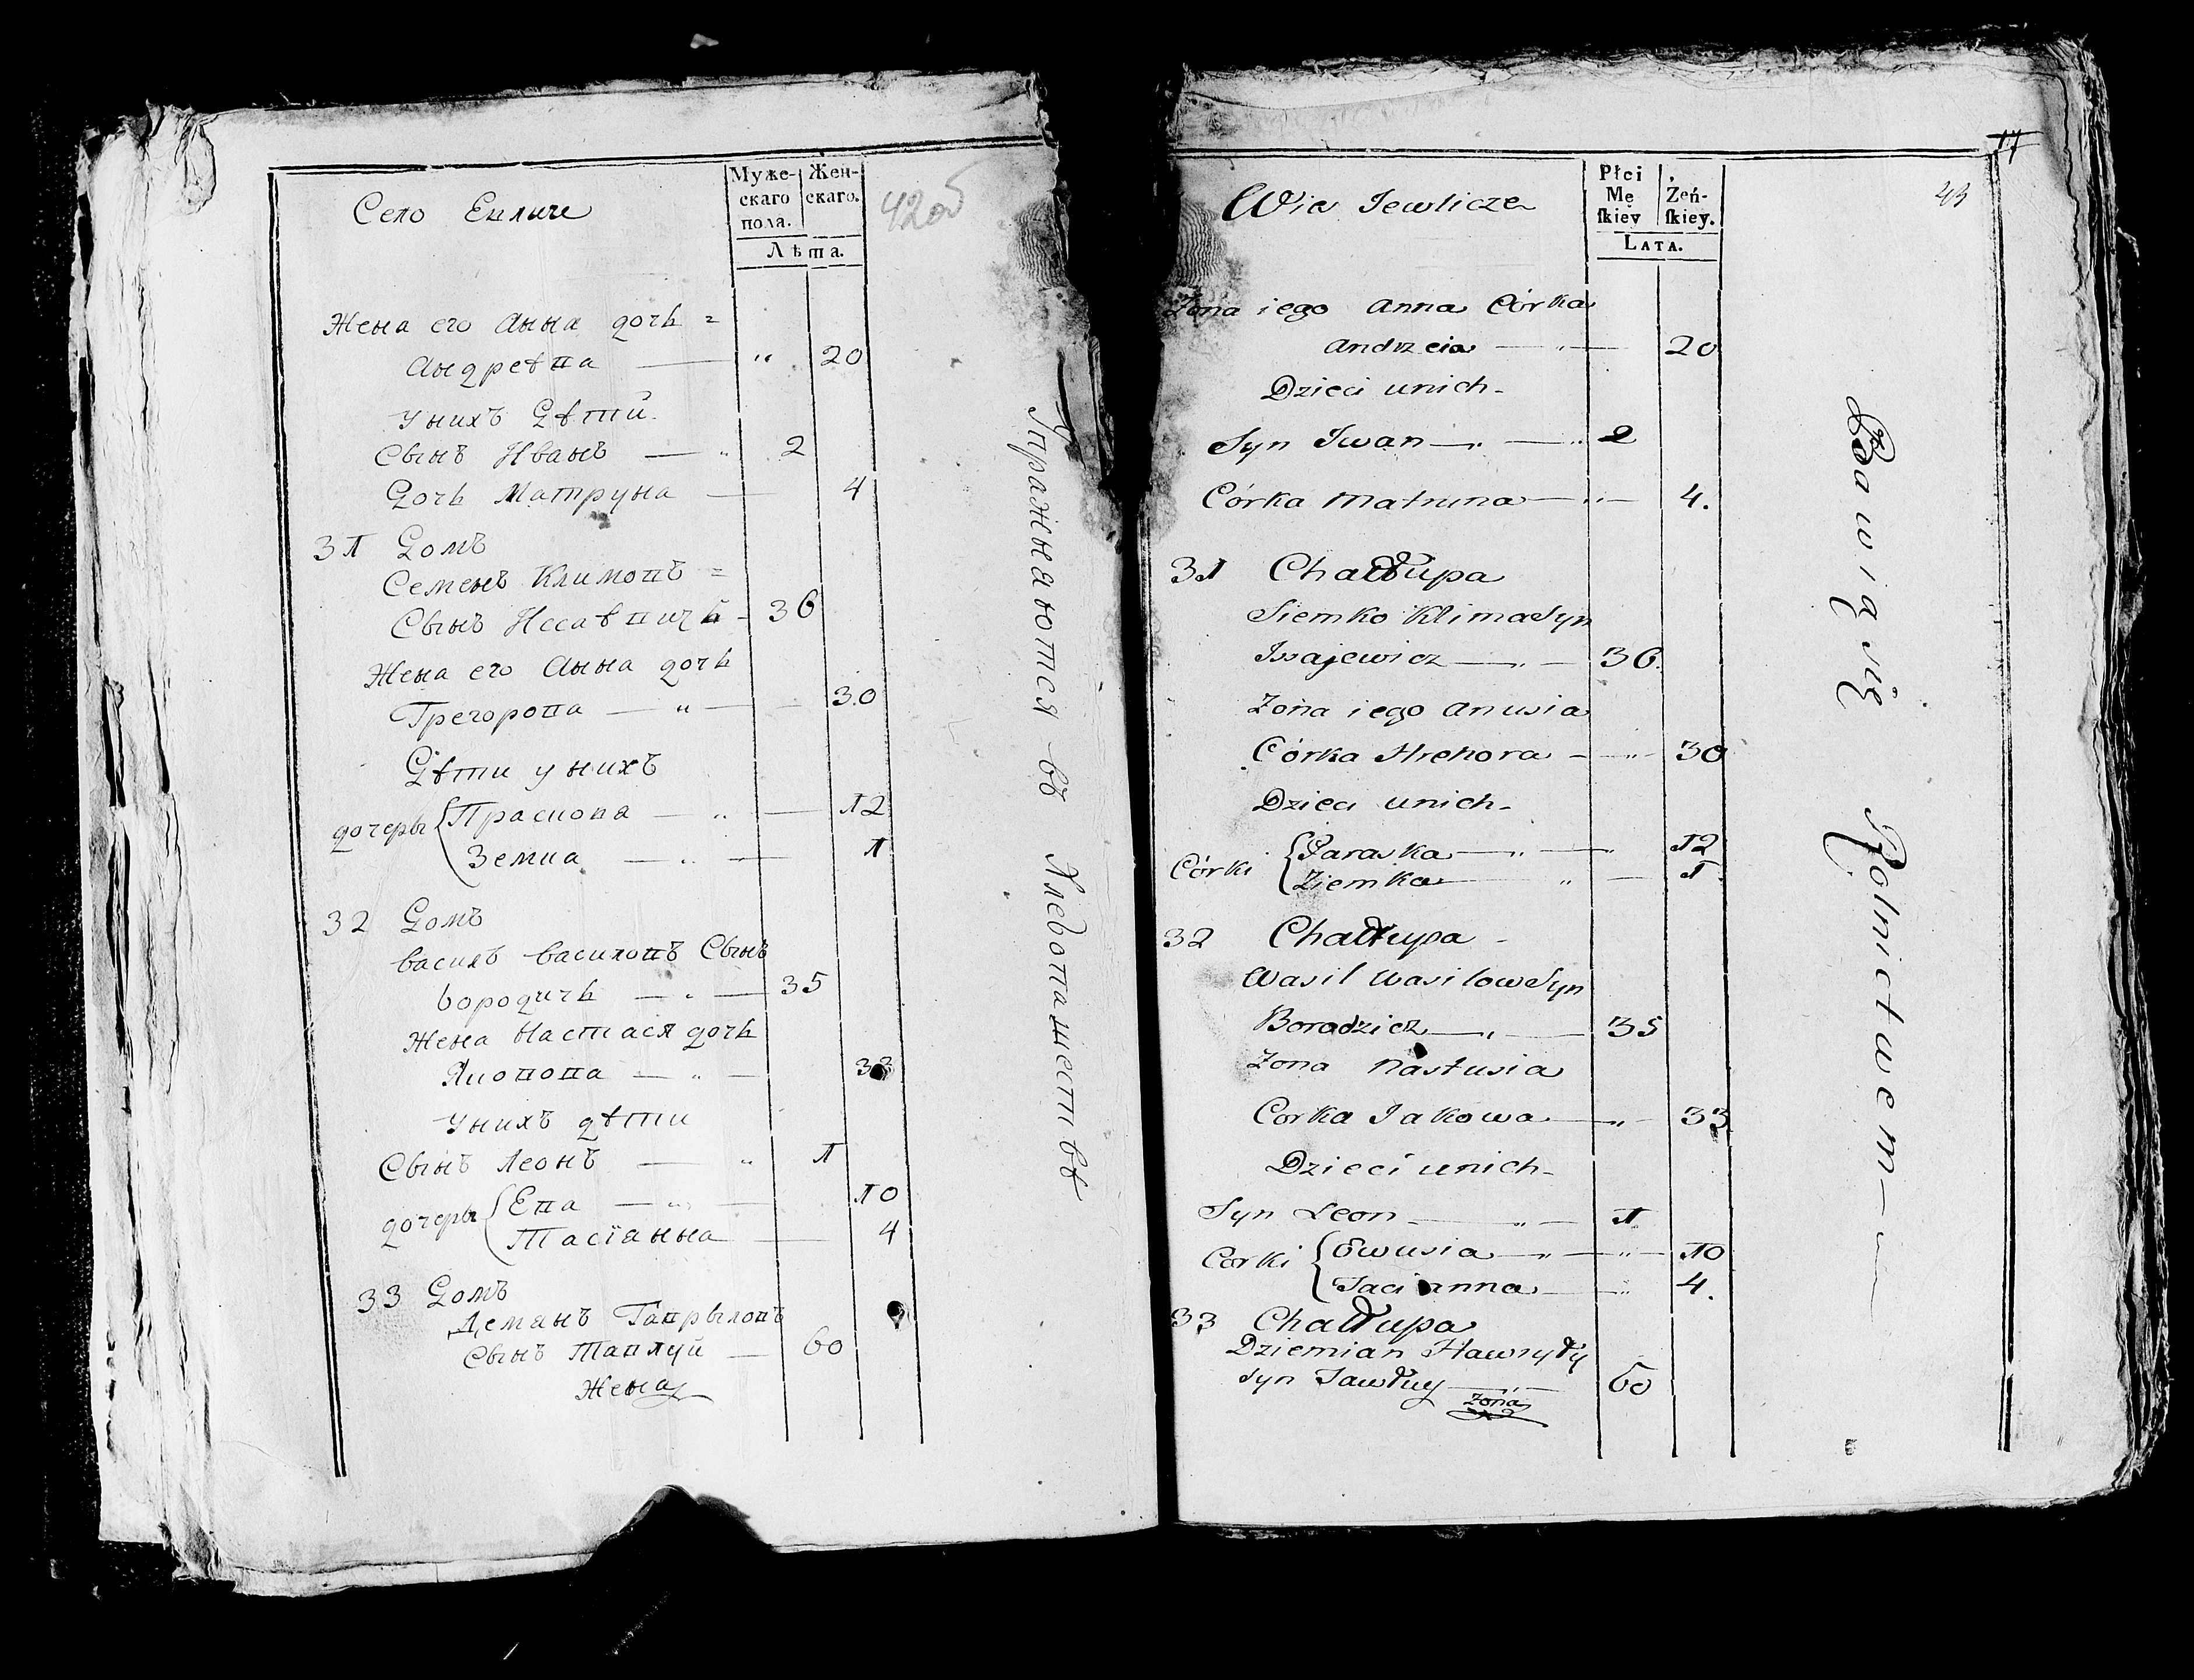 Село Евличе
Муже-
скаго
пола.
Жен-
скаго.
Лѣта.
42об
Жена его Анна дочь =
Андреѣва — " 20
У нихъ Дѣтй
Сынъ Иванъ — " 2
Дочь Матруна — 4
31 Домъ
Семенъ Климовъ =
Сынъ Иссаѣвичь - 36
Жена его Анна дочь
Грегорова — " — 30
Дѣти у нихъ
дочеры { Праскова — " — 12
Земка — " — 1
32 Домъ
Василь Василовъ Сынъ
Бородичь — " — 35
Жена Настася дочь
Яковова — " — 33
У нихъ дѣти
Сынъ Леонъ — " 1
дочеры { Ева — " — 10
Тасїанна — 4
33 Домъ
Деманъ Гаврыловъ
Сынъ Тавлуй — 60
Жена
Упражняются въ Хлебопашествѣ
17
43
Wies Jewlicze
Płci
Mę
ſkiey
Żeń-
ſkiey.
LATA.
Zona iego Anna Córka
Andrzeia — " — 20
Dzieci unich -
Syn Iwan — " — " 2
Córka Matruna — " — 4.
31 Chałłupa
Siemko Klima Syn
Issajewicz — " — 36.
Zona iego Anusia
Córka Hrehora - — " - 30
Dzieci unich -
Córki { Paraska — " — " 12
Ziemka — " — 1
32 Chałłupa -
Wasil Wasilow Syn
Boradzicz — " — 35
Zona Nastusia
Corka Jakowa — " - 33
Dzieci unich -
Syn Leon - — " — 1
Corki { Ewusia — " — " — 10
Taci anna — — " 4.
33 Chałłupa
Dziemian Hawryły
Syn Tawłuy — " — 60
Zona
Bawią się Rolnictwem —